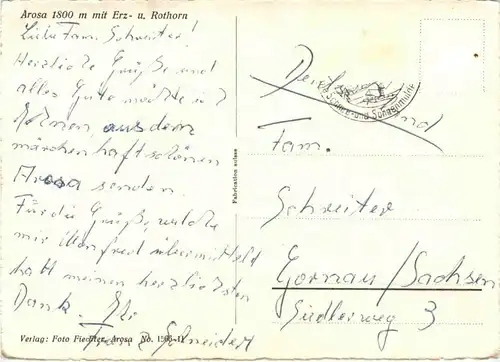 Arosa 1800 m mit Erz- u. Rothorn
Liebe Fam. Schreiter!
Herzliche Grüße und
alles Gute möchte ich
Ihnen, aus dem
märchenhaft schönen
Arosa senden.
Für die Grüße, welche
mir Manfred übermittelt
hatt meinen herzlichsten
Dank. Ihr
Franz Schneider
Verlag: Foto Fiedler, Arosa No.
Fabrication suisse
Schnee- und Sonnenhöhe
Deutschland
Fam.
Schreiter
Gornau/Sachsen
Siedlerweg 3